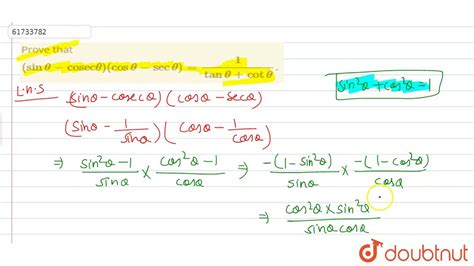 61733782
Prove that
(sin θ − cosecθ)(cos θ − sec θ) = 1/(tan θ + cot θ).
sin²θ + cos²θ = 1
L.H.S (sinθ - cosecθ) (cosθ - secθ)
(sinθ - 1/sinθ) (cosθ - 1/cosθ)
⇒ (sin²θ - 1)/sinθ × (cos²θ - 1)/cosθ ⇒ -(1 - sin²θ)/sinθ × -(1 - cos²θ)/cosθ
⇒ (cos²θ × sin²θ)/(sinθ cosθ)
doubtnut